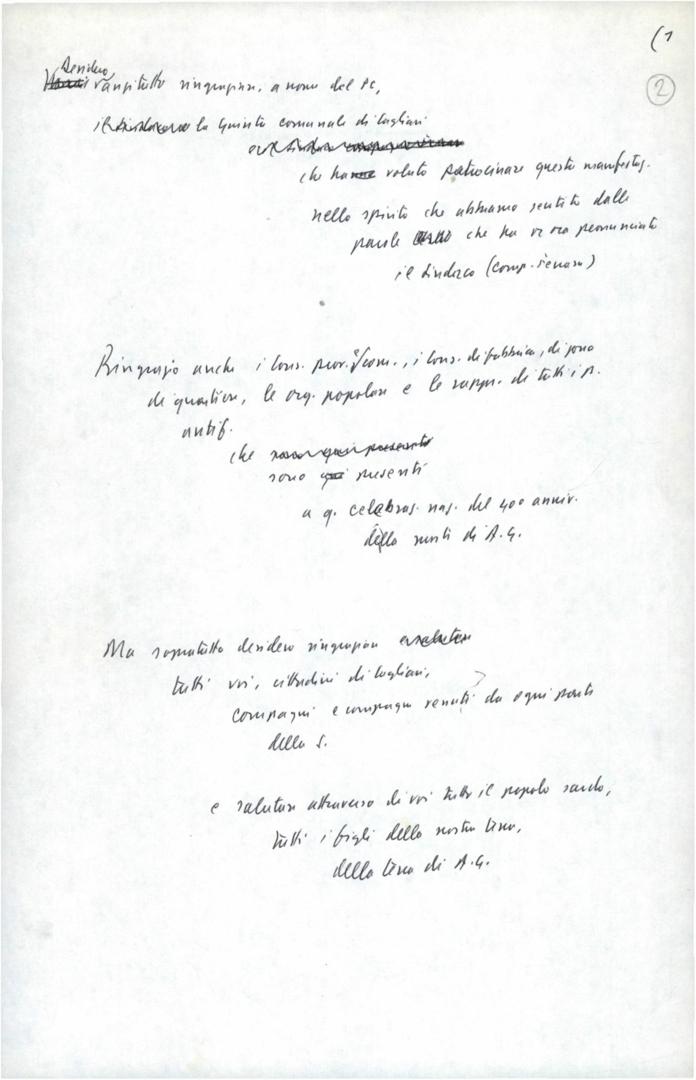 (1
2
Desidero
anzitutto ringraziare, a nome del PC,
il sindaco e la Giunta comunale di Cagliari
e il sindaco
che hanno voluto patrocinare questa manifestaz.
nello spirito che abbiamo sentito dalle
parole che ha or ora pronunciato
il sindaco (comp.
Ringrazio anche i Cons. prov. e com., i cons. di fabbrica, di zona
di quartiere, le org. popolari e le rappr. di tutti i p.
antif.
che sono qui presenti
sono qui presenti
a q. celebraz. naz. del 40o anniv.
della morte di A.G.
Ma soprattutto desidero ringraziare e salutare
tutti voi, cittadini di Cagliari,
compagni e compagne venuti da ogni parte
della S.
e salutare attraverso di voi tutto il popolo sardo,
tutti i figli della nostra terra,
della terra di A.G.